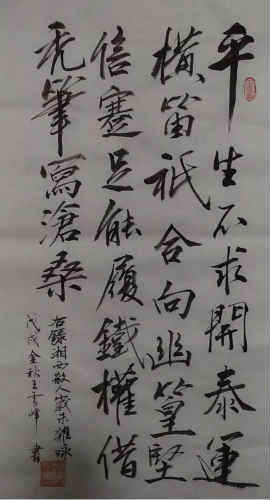 平生不求開泰運
橫笛祇合向幽篁堅
信蹇足能履鐵權借
禿筆寫滄桑
右錄湘西散人歲末雜咏
戊戌金秋王雲峰書